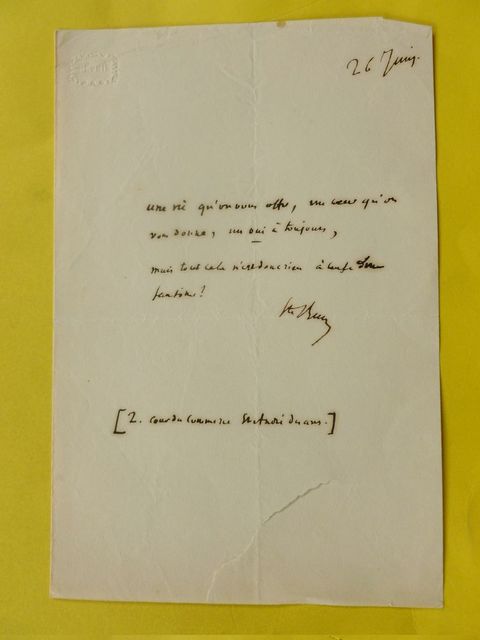 26 Juin.
une vie qu'on vous offre, un cœur qu'on
vous donne, un oui à toujours,
mais tout cela n'est donc rien à
fantôme!
Ste Beuve
[2. cour du Commerce St André des arts.]